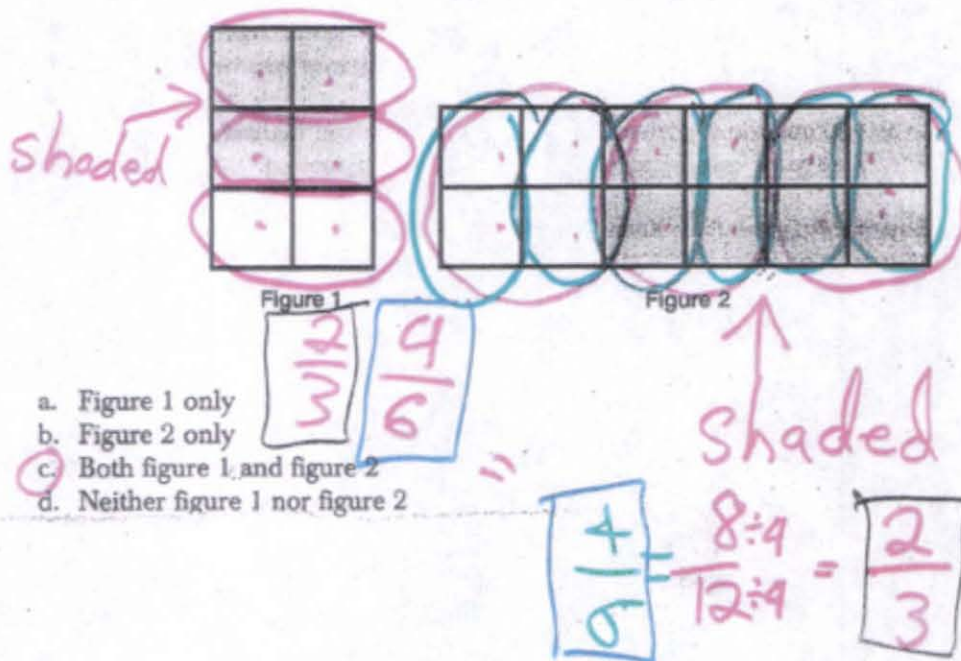 shaded
Figure 1
Figure 2
2/3
4/6
shaded
a. Figure 1 only
b. Figure 2 only
c. Both figure 1 and figure 2
d. Neither figure 1 nor figure 2
4/6 = 8÷4/12÷4 = 2/3